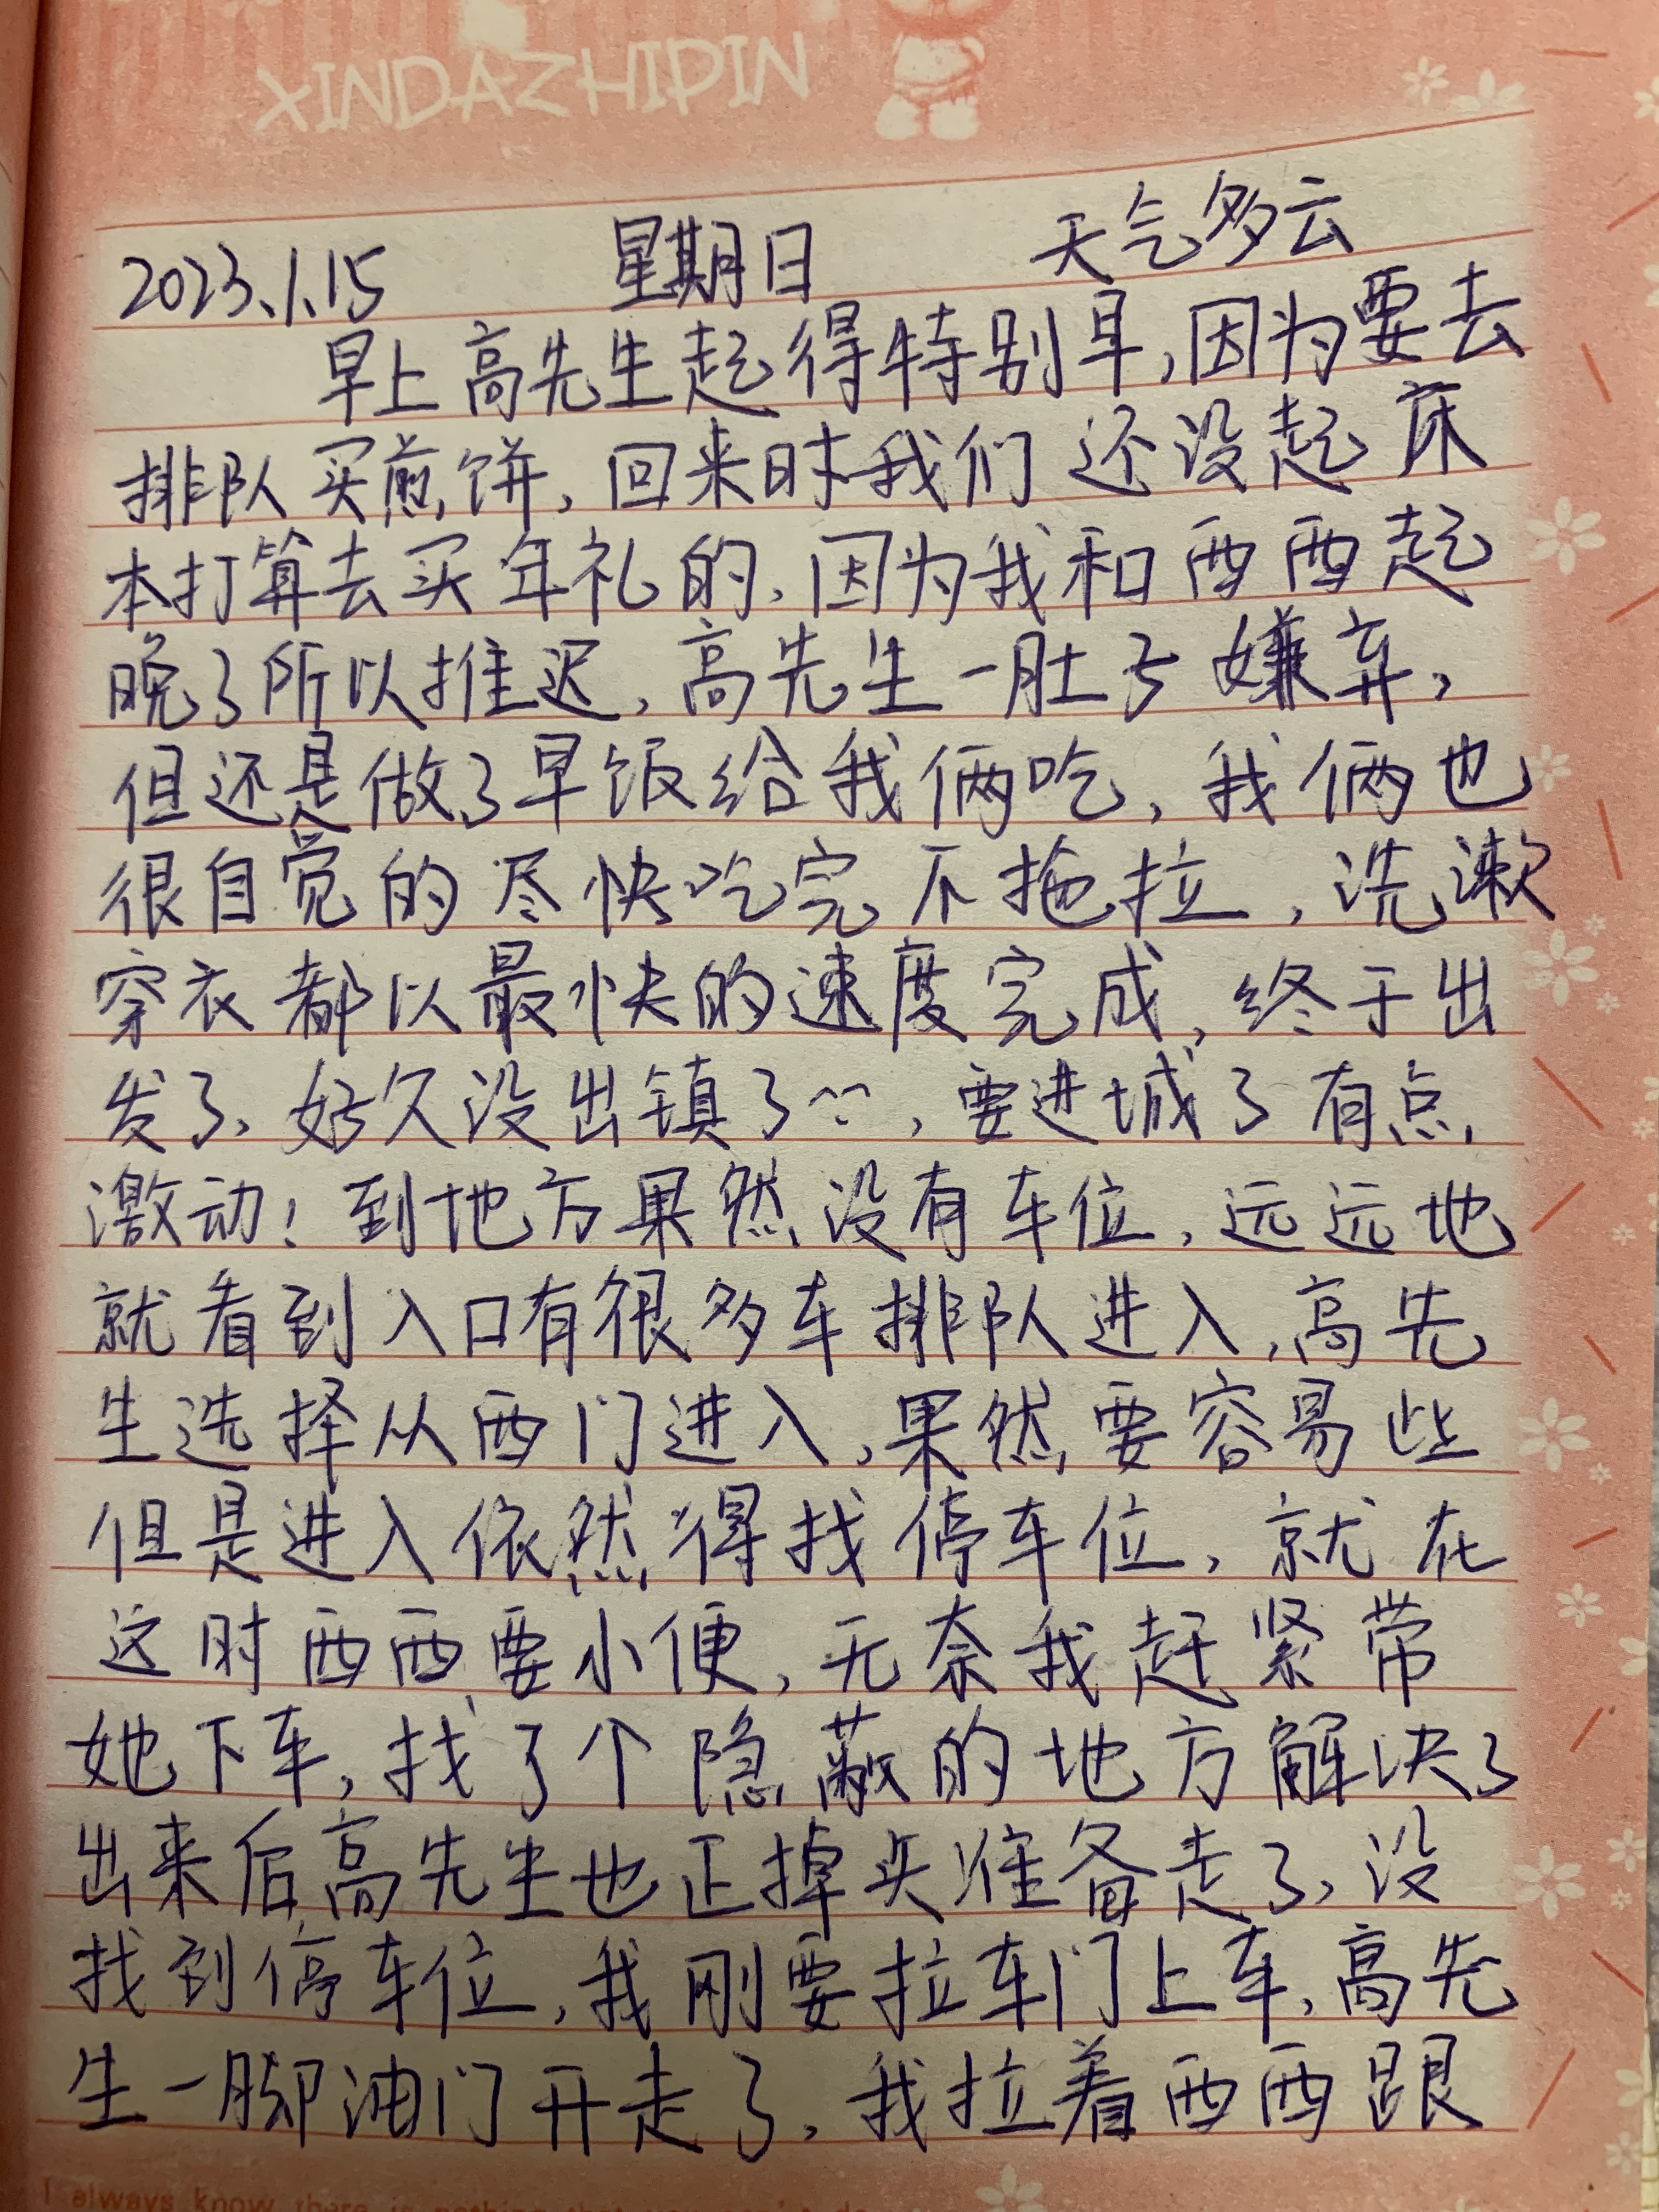 XINDAZHIPIN
2023.1.15 星期日 天气多云
早上高先生起得特别早,因为要去
排队买煎饼,回来时我们还没起床
本打算去买年礼的,因为我和西西起
晚了所以推迟,高先生一肚子嫌弃,
但还是做了早饭给我俩吃,我俩也
很自觉的尽快吃完不拖拉,洗漱
穿衣都以最快的速度完成,终于出
发了、好久没出镇了^^,要进城了有点
激动!到地方果然没有车位,远远地
就看到入口有很多车排队进入,高先
生选择从西门进入,果然要容易些
但是进入依然得找停车位,就在
这时西西要小便,无奈我赶紧带
她下车,找了个隐蔽的地方解决了
出来后高先生也正掉头准备走了、没
找到停车位,我刚要拉车门上车,高先
生一脚油门开走了,我拉着西西跟
I always know there is nothing that